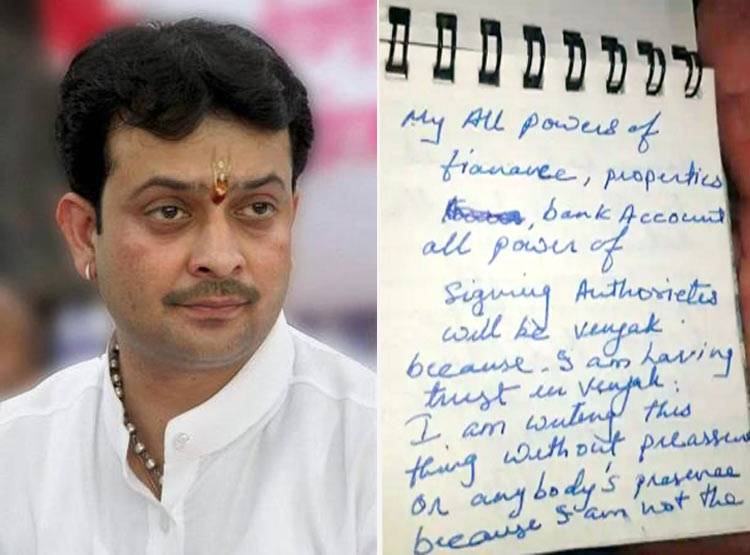 My All powers of
fianance, properties
, bank Account
all power of
signing Authorieties
will be Venyak
because I am having
trust in Venyak.
I am writing this
thing without preassure
or anybody's presence
because I am not the